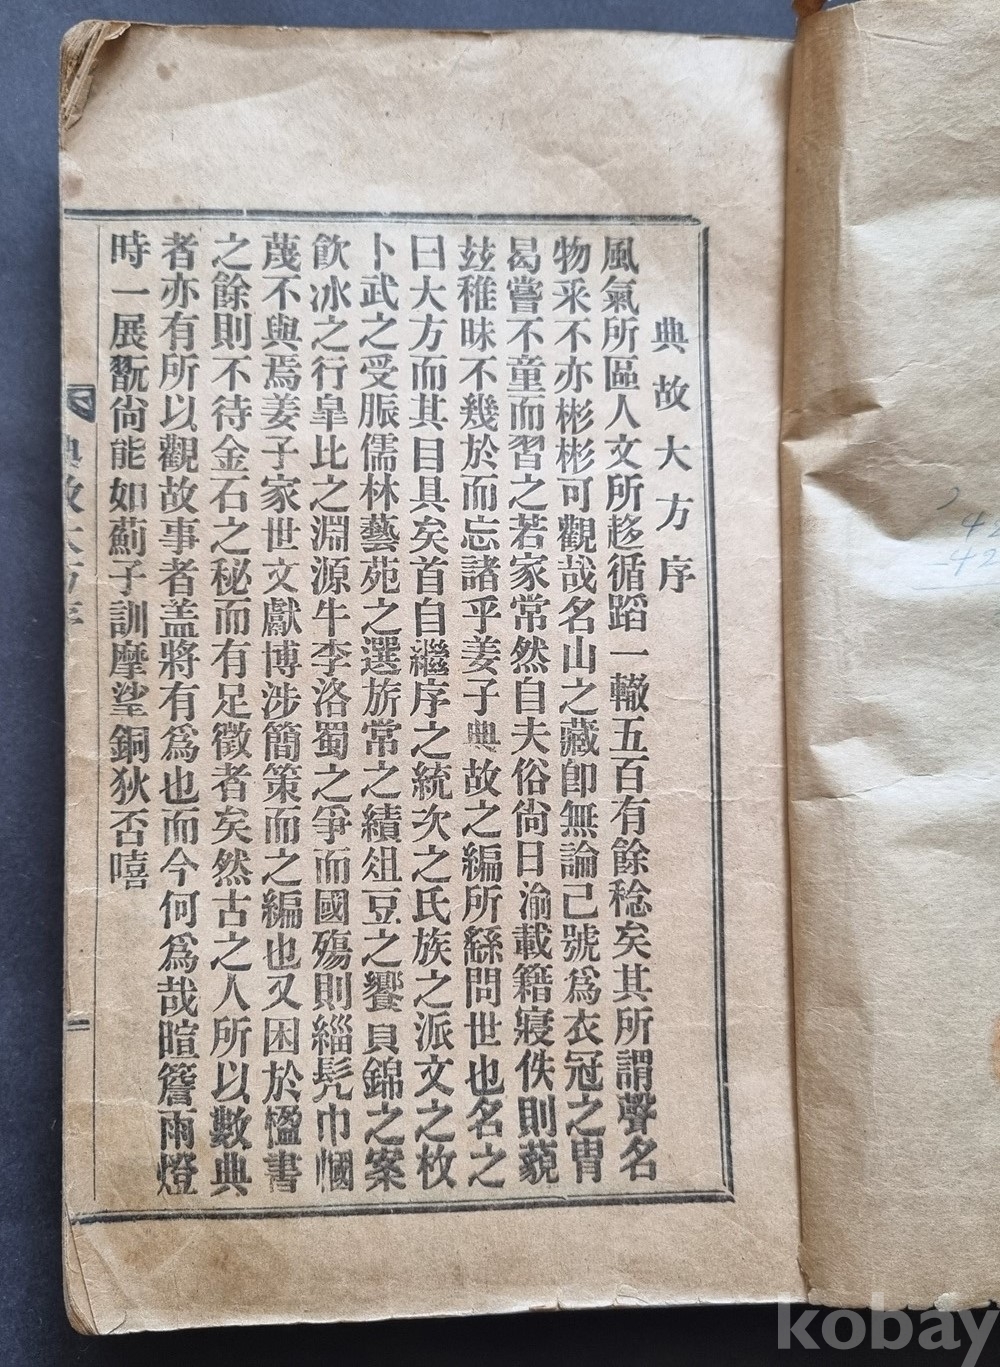 典故大方序
風氣所區人文所趍循蹈一轍五百有餘稔矣其所謂聲名
物采不亦彬彬可觀哉名山之藏卽無論己號爲衣冠之胄
曷嘗不童而習之若家常然自夫俗尙日渝載籍寢佚則藐
玆稚昧不幾於而忘諸乎姜子典故之編所繇問世也名之
曰大方而其目具矣首自繼序之統次之氏族之派文之枚
卜武之受脤儒林藝苑之選旂常之績俎豆之饗貝錦之案
飮冰之行皐比之淵源牛李洛蜀之爭而國殤則緇髠巾幗
蔑不與焉姜子家世文獻博涉簡策而之編也又困於楹書
之餘則不待金石之秘而有足徵者矣然古之人所以數典
者亦有所以觀故事者盖將有爲也而今何爲哉暄簷雨燈
時一展翫尙能如薊子訓摩挲銅狄否嘻
典故大方序
42
-42
kobay